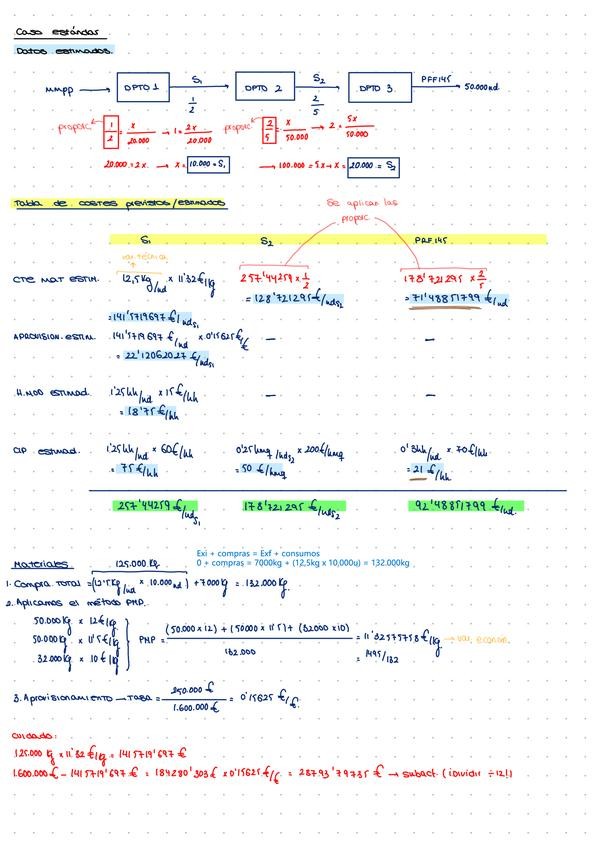 Caso estándar
Datos estimados.
MMPP → DPTO 1 S₁ 1/2 → DPTO 2 S₂ 2/5 → DPTO 3. PFF145 → 50.000 und.
proporc. 1/2 = x/20.000 → 1 = 2x/20.000 proporc. 2/5 = x/50.000 → 2 = 5x/50.000
20.000 = 2x → x = 10.000 = S₁ → 100.000 = 5x → x = 20.000 = S₂
Tabla de costes previstos/estimados
Se aplican las proporc.
S₁ S₂ PRF.145
var. técnica
CTE MAT ESTIM. 12,5 kg/ud × 11'32 €/kg 257'44259 × 1/2 178'721295 × 2/5
= 128'721295 €/uds₂ = 71'48851799 €/ud
= 141'5719697 €/uds₁
APROVISION. ESTIM. 141'5719697 €/ud × 0'15625 €/€ — —
= 22'12062027 €/uds₁
H.MOD ESTIMAD. 1'25 hh/ud × 15 €/hh — —
= 18'75 €/hh
CIP estimad. 1'25 hh/ud × 60 €/hh 0'25 hmq/uds₂ × 200 €/hmq 0'3 hh/ud × 70 €/hh
= 75 €/hh = 50 €/hmq = 21 €/hh
257'44259 €/uds₁ 178'721295 €/uds₂ 92'48851799 €/ud.
Materiales 125.000 kg.
Exi + compras = Exf + consumos
0 + compras = 7000kg + (12,5kg x 10,000u) = 132.000kg
1. Compra TOTAL = (12'5 kg/ud × 10.000 ud) + 7000 kg = 132.000 kg
2. Aplicamos el método PMP.
50.000 kg × 12 €/kg
50.000 kg × 11'5 €/kg
32.000 kg × 10 €/kg
PMP = (50.000 × 12) + (50000 × 11'5) + (32000 × 10) / 132.000 = 11'32575758 €/kg → var. econom.
= 1495/132
3. Aprovisionamiento → TASA = 250.000 € / 1.600.000 € = 0'15625 €/€.
Cuidado:
125.000 kg × 11'32 €/kg = 1415719'697 €
1.600.000 € - 1415719'697 € = 184280'303 € × 0'15625 €/€ = 28793'79735 € → subact. (dividir ÷ 12!!)